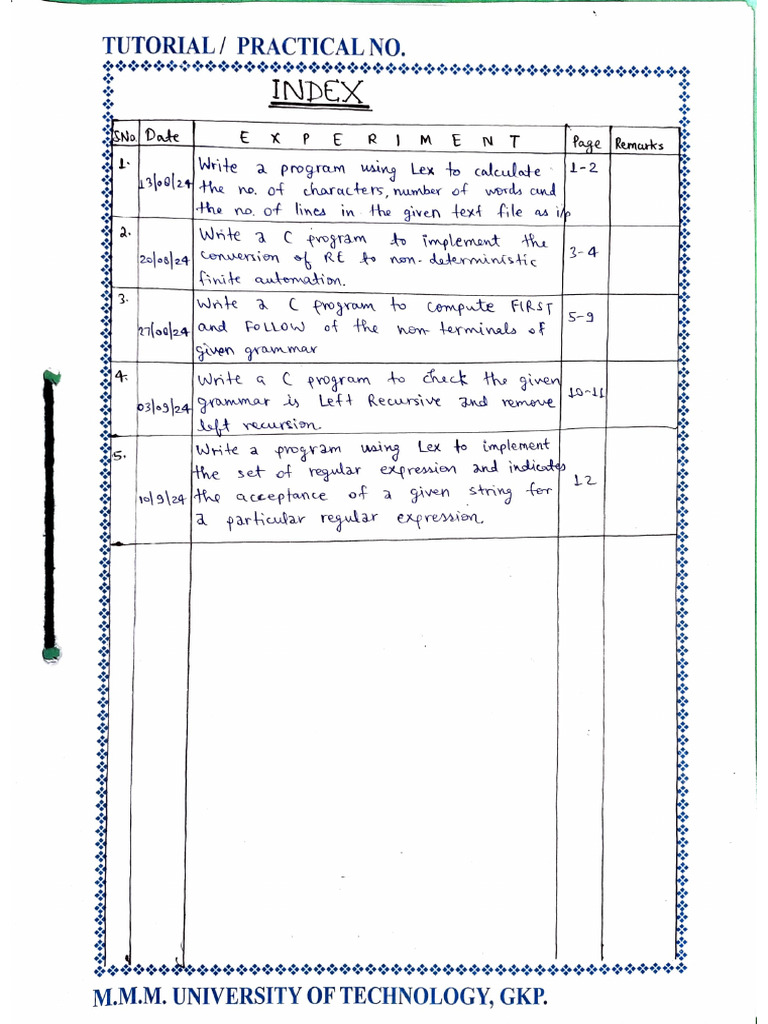 TUTORIAL / PRACTICAL NO.
INDEX
SNo. Date EXPERIMENT Page Remarks
1. 13/08/24 Write a program using Lex to calculate 1-2
the no. of characters, number of words and
the no. of lines in the given text file as i/p
2. 20/08/24 Write a C program to implement the 3-4
conversion of RE to non-deterministic
finite automation.
3. 27/08/24 Write a C program to compute FIRST 5-9
and FOLLOW of the non-terminals of
given grammar
4. 03/09/24 Write a C program to check the given 10-11
grammar is Left Recursive and remove
left recursion.
5. 10/9/24 Write a program using Lex to implement 12
the set of regular expression and indicates
the acceptance of a given string for
a particular regular expression.
M.M.M. UNIVERSITY OF TECHNOLOGY, GKP.